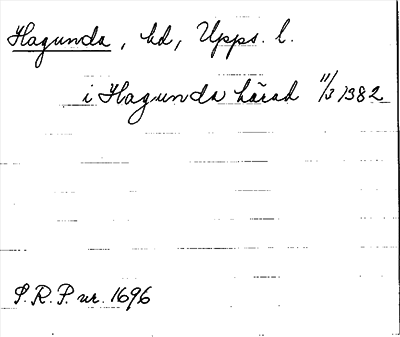 Hagunda, hd, Upps. l.
i Hagunda härad 11/3 1382
S.R.P. nr. 1696